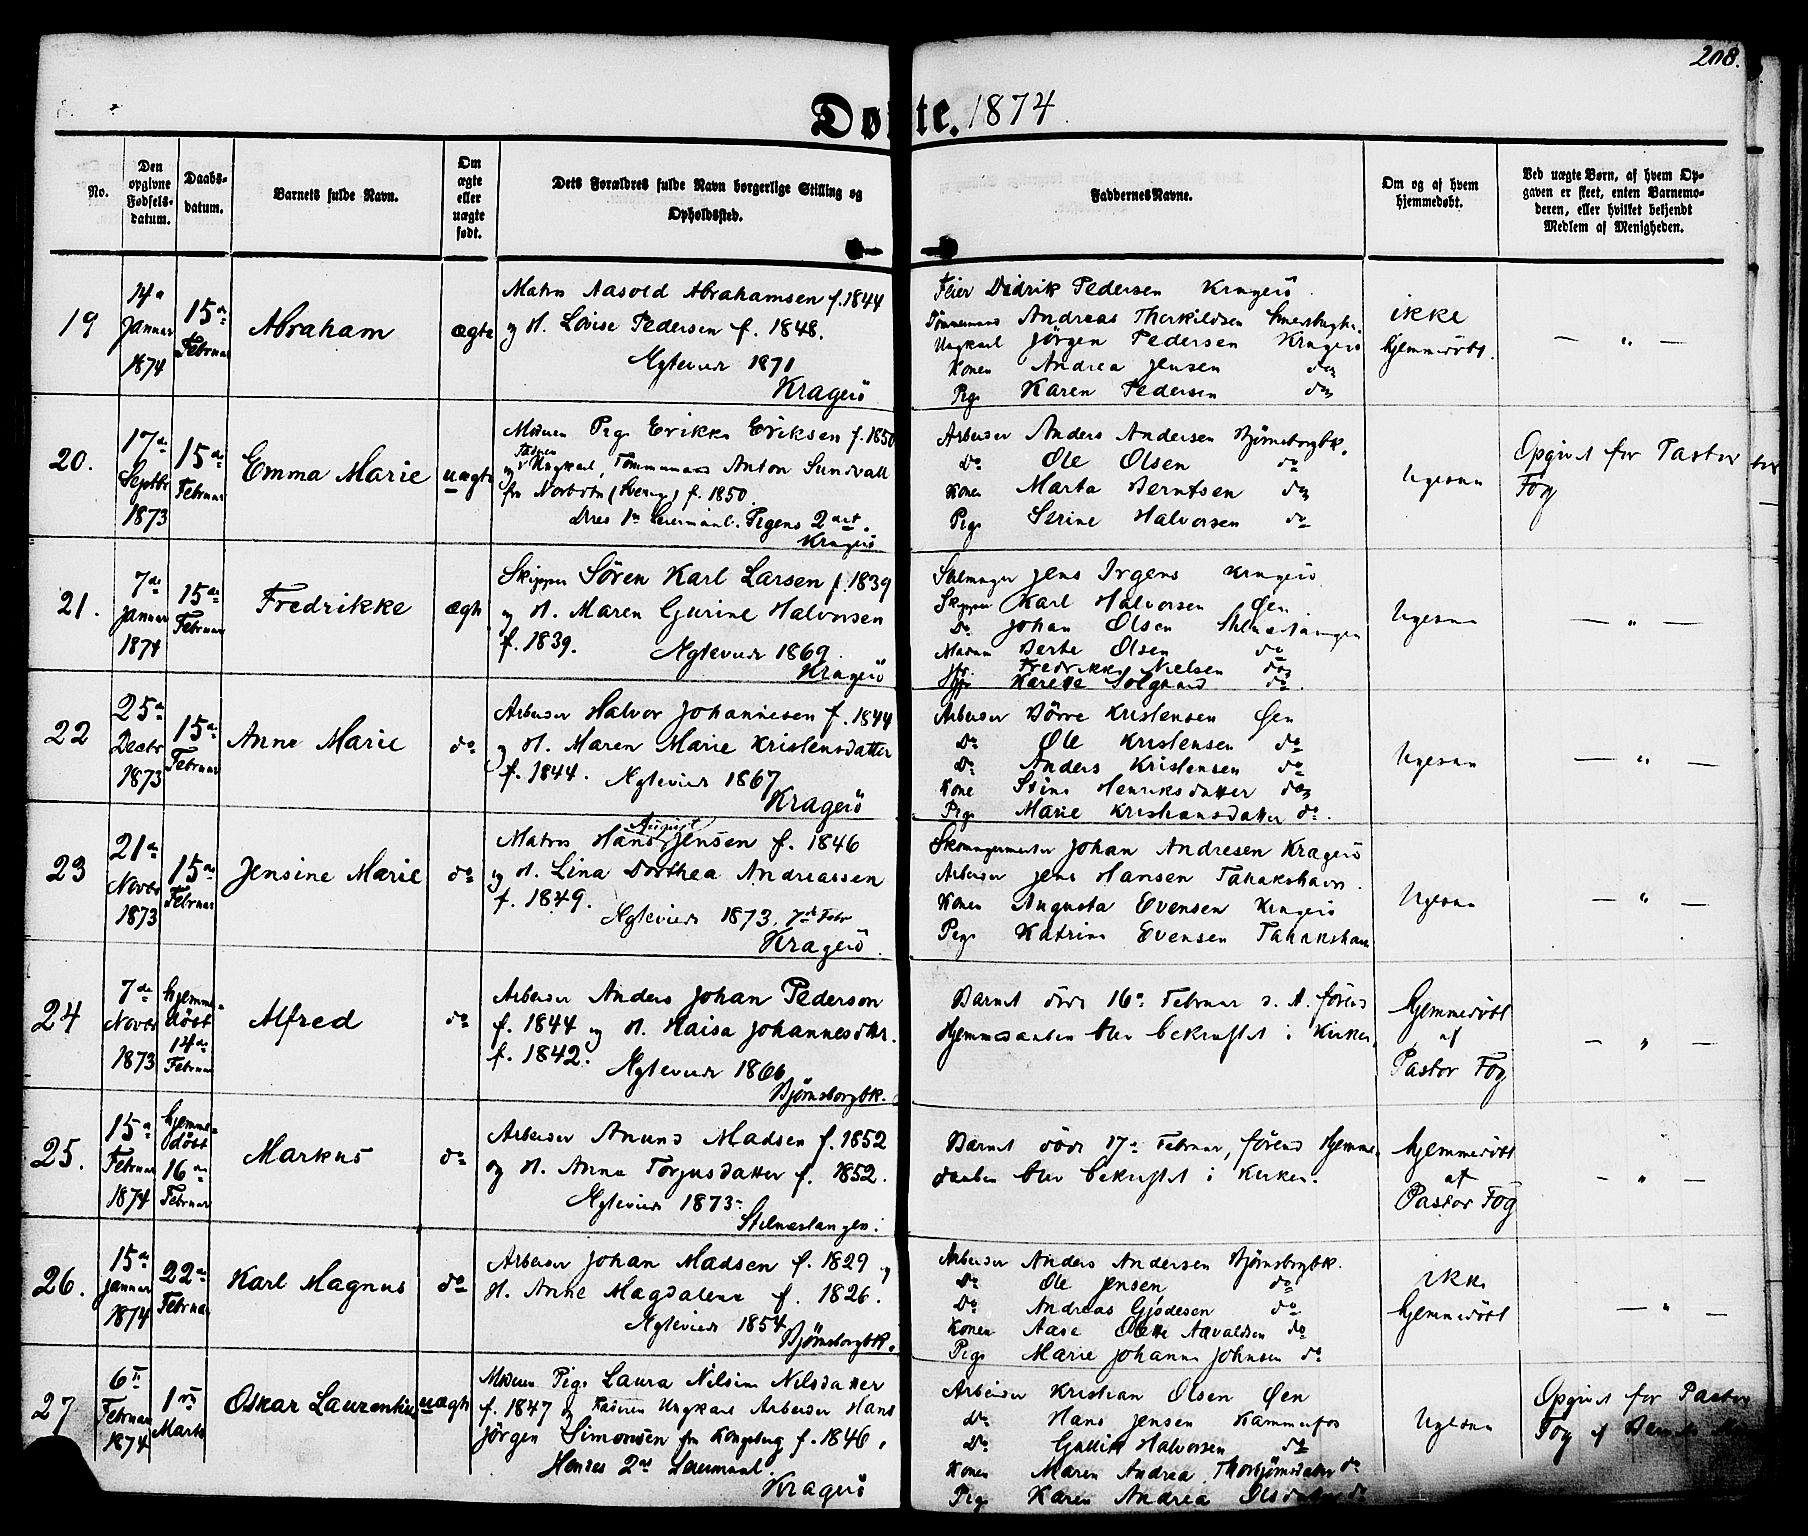 208.
Døbte. 1874.
No.
Den opgivne Fødsels-datum.
Daabs-datum.
Barnets fulde Navn.
Om ægte eller uægte født.
Dets Forældres fulde Navn borgerlige Stilling og Opholdssted.
Faddernes Navne.
Om og af hvem hjemmedøbt.
Ved uægte Børn, af hvem Opgaven er skeet, enten Barnemoderen, eller hvilket bekjendt Medlem af Menigheden.
19
14de Januar 1874
15de Februar
Abraham
ægte
Matros Aasold Abrahamsen f. 1844
og H. Lovise Pedersen f. 1848.
Ægteviede 1871
Kragerö
Feier Didrik Pedersen Kragerö
Tömmermand Andreas Therkildsen
Ungkarl Jörgen Pedersen Kragerö
Konen Andrea Jensen do
Pige Karen Pedersen do
ikke hjemmedöbt.
— " —
20.
17de Septbr 1873
15de Februar
Emma Marie
uægte
Moderen Pige Erikke Eriksen f. 1850
og Faderen Ungkarl, Tömmermand Anton Sundvall
fra Norbotn (Sverig) f. 1850.
Deres 1ste Leiermaal. Pigens 2det.
Kragerö
Arbeider Anders Andersen Bjørnsborgbk.
Do Ole Olsen do
Konen Marta Berntsen do
Pige Serine Halvorsen do
Ligesaa
Opgivet for Pastor
Fog
21.
7de Januar 1874
15de Februar
Fredrikke
ægte
Skipper Sören Karl Larsen f. 1839
og H. Maren Gurine Halvorsen
f. 1839. Ægteviede 1869.
Kragerö
Jens Irgens Kragerö
Skipper Karl Halvorsen Øen
Do Johan Olsen Stilnestangen
Madam Berte Olsen do
Fredrikke Nielsen do
Karette Solgaard do.
Ligesaa
— " —
22
25de Decbr 1873
15de Februar
Anne Marie
do
Arbeider Halvor Johannesen f. 1844
og H. Maren Marie Kristensdatter
f. 1844. Ægteviede 1867
Kragerö
Arbeider Börre Kristensen Øen
Do Ole Kristensen do
Do Anders Kristensen do
Kone Stine Henriksdatter do
Pige Marie Kristiansdatter do.
Ligesaa
— " —
23
21de Novbr 1873
15de Februar
Jensine Marie
do
Matros Hans August Jensen f. 1846
og H. Lina Dorthea Andreassen
f. 1849. Ægteviede 1873. 7de Febr
Kragerö.
Skomagermester Johan Andresen Kragerö
Arbeider Jens Hansen Tabakshavn.
Konen Augusta Evensen Kragerö
Pige Katrine Evensen Tabakshavn
Ligesaa
— " —
24
7de Novbr 1873
hjemmedöbt 14de Februar
Alfred
do
Arbeider Anders Johan Pederson
f. 1844 og H. Kaisa Johannesdtr.
f. 1842. Ægteviede 1866
Bjørnsborgbk.
Barnet döde 16de Februar s. A. förend
Hjemmedaaben blev bekræftet i Kirken.
hjemmedöbt af Pastor Fog
— " —
25.
15de Februar 1874
hjemmedöbt 16de Februar
Markus
do
Arbeider Anund Madsen f. 1852
og H. Anne Torjusdatter f. 1852.
Ægteviede 1873
Stilnestangen.
Barnet döde 17de Februar, förend Hjemmedaaben blev bekræftet i Kirken.
hjemmedöbt af Pastor Fog
— " —
26.
15de Januar 1874
22de Februar
Karl Magnus
do
Arbeider Johan Madsen f. 1829 og
H. Anne Magdalene f. 1826.
Ægteviede 1854
Bjørnsborgbk.
Arbeider Anders Andersen Bjørnsborgbk.
Do Ole Jensen do
Do Andreas Gjødesen do
Konen Aase Olette Aavaldsen do
Pige Marie Johanne Johnsen do
ikke hjemmedöbt
— " —
27
6te Februar 1874
1ste Marts
Oskar Laurentius
uægte
Moderen Pige Laura Nilsine Nilsdatter
f. 1847 og Faderen Ungkarl Arbeider Hans
Jörgen Simonsen fra Kongsberg f. 1846.
Hendes 2det Leiermaal.
Kragerö
Arbeider Kristian Olsen Øen
do. Hans Jensen Kammerfos
Do Gullik Halvorsen do
Konen Maren Andrea Thorbjørnsdatter do
Pige Karen Andrea Olsdatter do
Ligesaa
Opgivet for Pastor
Fog af